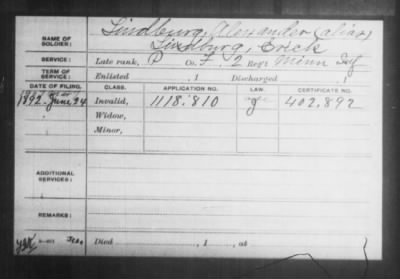 Lindburg, Alexander (alias)
NAME OF SOLDIER: Lindburg, Erick
SERVICE: Late rank, P Co. F, 2 Reg't Minn Inf
TERM OF SERVICE: Enlisted , 1 Discharged , 1
DATE OF FILING. CLASS. APPLICATION NO. LAW. CERTIFICATE NO.
1892 June 24 Invalid, 1118.810 g 402.892
Widow,
Minor,
ADDITIONAL SERVICES:
REMARKS:
Died , 1 , at